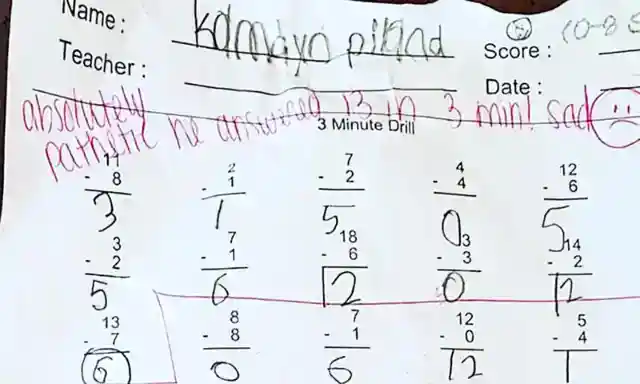 Name: Kamayn pikind
Teacher:
Score: 
Date:
absolutely pathetic he answered 13 in 3 min! sad
3 Minute Drill
11 2 7 4 12
- 8 - 1 - 2 - 4 - 6
3 1 5 0 5
3 7 18 3 14
- 2 - 1 - 6 - 3 - 2
5 6 12 0 12
13 8 7 12 5
- 7 - 8 - 1 - 0 - 4
6 0 6 12 1